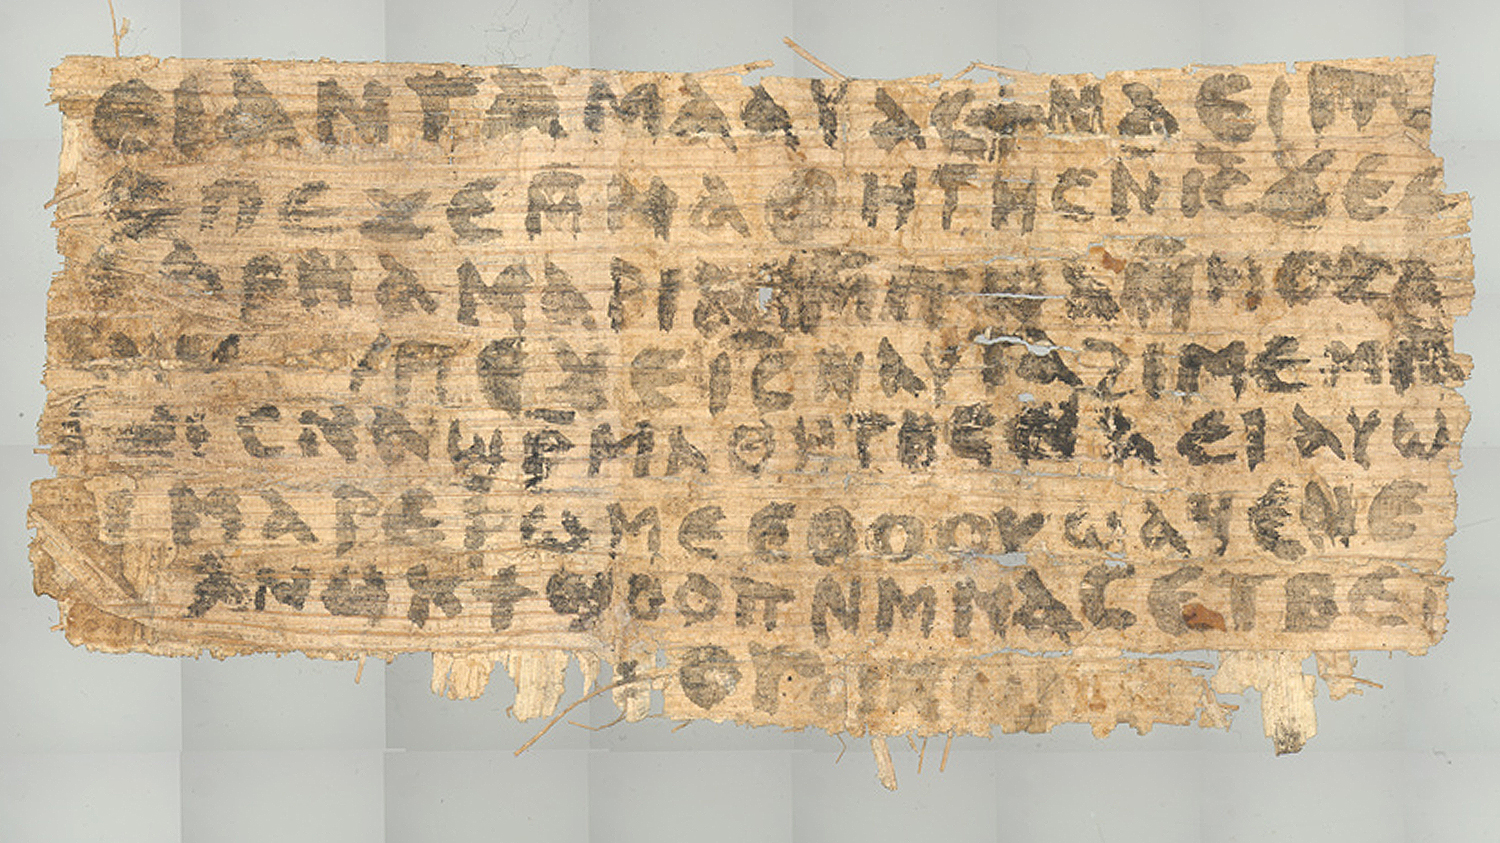 ⲉⲓ ⲁⲛ ⲧⲁⲙⲁⲁⲩ ⲁⲥϯ ⲛⲁⲉⲓ ⲡⲱ
ⲡⲉϫⲉ ⲙⲙⲁⲑⲏⲧⲏⲥ ⲛⲓⲥ ϫⲉ ⲥ
ⲁⲣⲛⲁ ⲙⲁⲣⲓⲁⲙ ⲙⲡϣⲁ ⲙⲙⲟⲥ ⲁ
ⲡⲉϫⲉ ⲓⲥ ⲛⲁⲩ ⲧⲁϩⲓⲙⲉ ⲙⲛ
ⲥⲛⲁϣⲣⲙⲁⲑⲏⲧⲏⲥ ⲛⲁⲉⲓ ⲁⲩⲱ
ⲓ ⲙⲁⲣⲉⲣⲱⲙⲉ ⲉⲑⲟⲟⲩ ϣⲁϥⲉ ⲛⲉ
ⲁⲛⲟⲕ ϯϣⲟⲟⲡ ⲛⲙⲙⲁⲥ ⲉⲧⲃⲉ ⲡ
ⲟⲩϩⲓⲕⲱⲛ